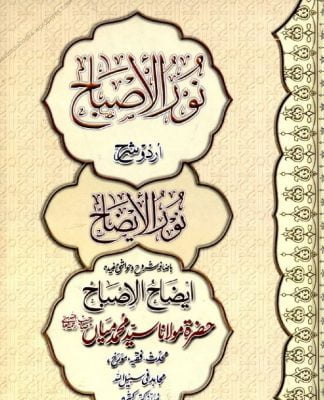 نُورُ الْأَصْبَاح
اُردُو شرح
نُورُ الْإِيضَاح
باضافہ شروح و حواشی مفیدہ
ایضاحُ الْاِصْبَاح
حضرۃ مولانا سیّد محمّد میاںؒ
محدث، فقیہ، مؤرخ،
مجاہد فی سبیل اللہ